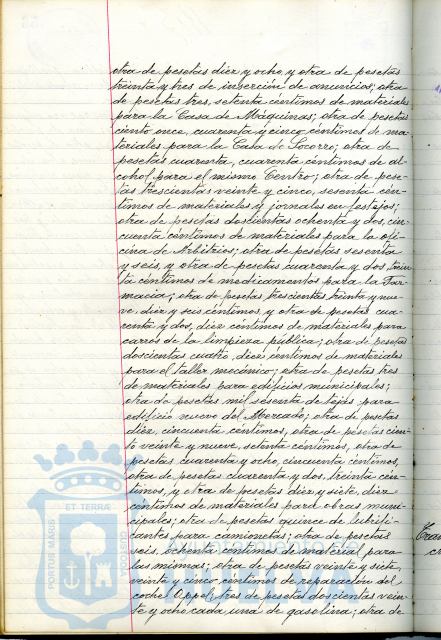 otra de pesetas diez y ocho, y otra de pesetas
treinta y tres de inserción de anuncios; otra
de pesetas tres, setenta céntimos de materiales
para la Casa de Máquinas; otra de pesetas
ciento once, cuarenta y cinco céntimos de ma-
teriales para la Casa de Socorro; otra de
pesetas cuarenta, cuarenta céntimos de al-
cohol para el mismo Centro; otra de pese-
tas trescientas veinte y cinco, sesenta cén-
timos de materiales y jornales en festejos;
otra de pesetas doscientas ochenta y dos, cin-
cuenta céntimos de materiales para la ofi-
cina de Arbitrios; otra de pesetas sesenta
y seis, y otra de pesetas cuarenta y dos, trein-
ta céntimos de medicamentos para la Far-
macia; otra de pesetas trescientas treinta y nue-
ve, diez y seis céntimos, y otra de pesetas cua-
renta y dos, diez céntimos de materiales para
carros de la limpieza pública; otra de pesetas
doscientas cuatro, diez céntimos de materiales
para el taller mecánico; otra de pesetas tres
de materiales para edificios municipales;
otra de pesetas mil sesenta de tejas para
edificio nuevo del Mercado; otra de pesetas
diez, cincuenta céntimos, otra de pesetas cien-
to veinte y nueve, setenta céntimos, otra de
pesetas cuarenta y ocho, cincuenta céntimos,
otra de pesetas cuarenta y dos, treinta cén-
timos, y otra de pesetas diez y siete, diez
céntimos de materiales para obras muni-
cipales; otra de pesetas quince de lubrifi-
cantes para camionetas; otra de pesetas
seis, ochenta céntimos de material para
las mismas; otra de pesetas veinte y siete,
veinte y cinco céntimos de reparación del
coche Oppel; tres de pesetas doscientas vein-
te y ocho cada una de gasolina; otra de
ET TERRÆ
PORTUS MARIS
CUSTODIA
Ayuntamiento de